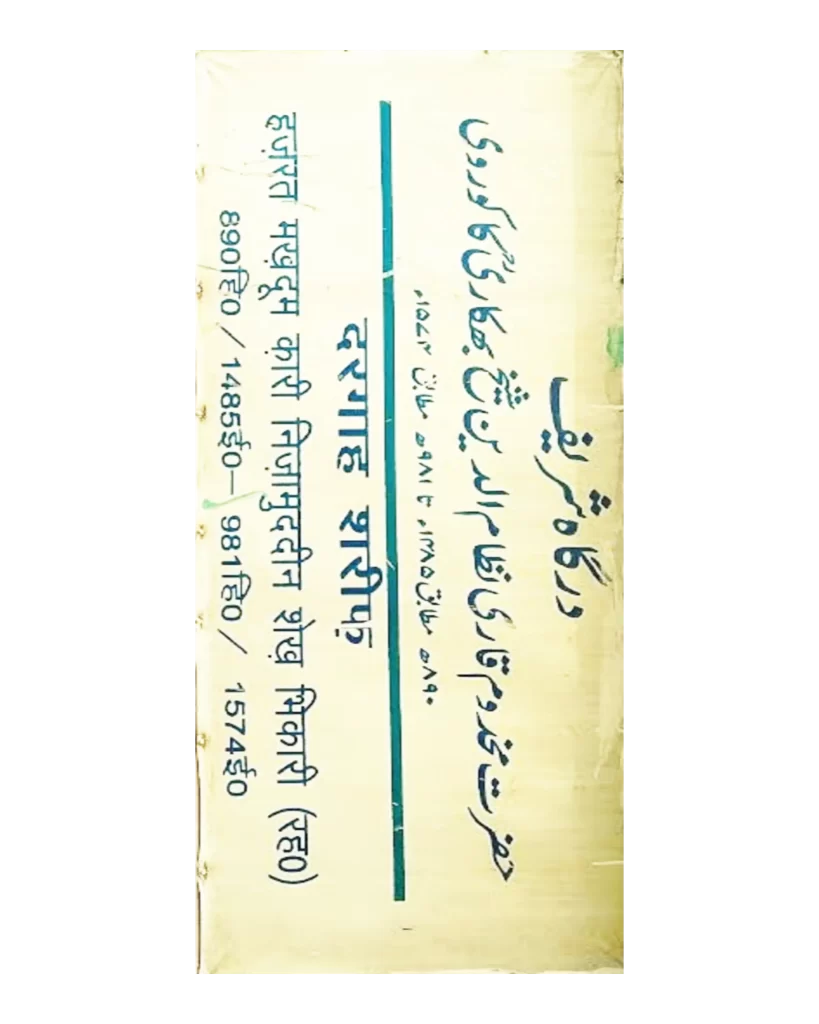 درگاہ شریف
حضرت مخدوم قاری نظام الدین شیخ بھکاریؒ کاکوروی
۸۹۰ھ مطابق ۱۴۸۵ء تا ۹۸۱ھ مطابق ۱۵۷۴ء
दरगाह शरीफ़
हज़रत मख़दूम क़ारी निज़ामुददीन शेख़ भिकारी (रह0)
890हि0 / 1485ई0— 981हि0 / 1574ई0